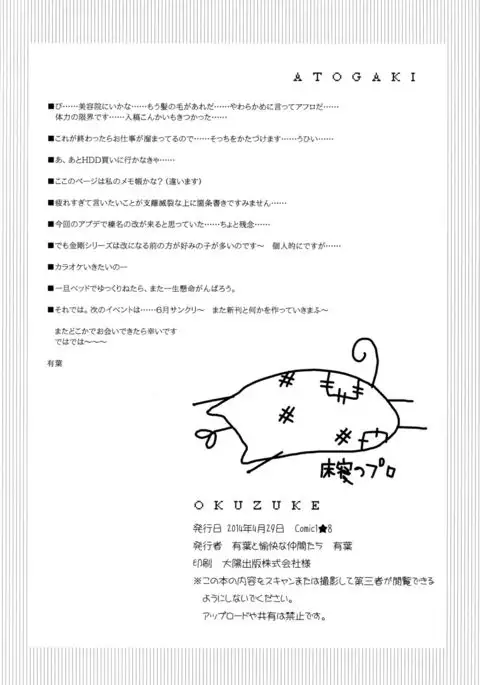 ATOGAKI
■び……美容院にいかな……もう髪の毛があれだ……やわらかめに言ってアフロだ……
体力の限界です……入稿こんかいもきつかった……
■これが終わったらお仕事が溜まってるので……そっちをかたづけます……うひい……
■あ、あとHDD買いに行かなきゃ……
■ここのページは私のメモ帳かな？（違います）
■疲れすぎて言いたいことが支離滅裂な上に箇条書きですみません……
■今回のアプデで榛名の改が来ると思っていた……ちょと残念……
■でも金剛シリーズは改になる前の方が好みの子が多いのです～　個人的にですが……
■カラオケいきたいのー
■一旦ベッドでゆっくりねたら、また一生懸命がんばろう。
■それでは。次のイベントは……6月サンクリ～　また新刊と何かを作っていきまふ～
またどこかでお会いできたら幸いです
ではでは～～～
有葉
床寝つプロ
OKUZUKE
発行日 2014年4月29日　Comic1★8
発行者　有葉と愉快な仲間たち　有葉
印刷　大陽出版株式会社様
※この本の内容をスキャンまたは撮影して第三者が閲覧できる
ようにしないでください。
アップロードや共有は禁止です。